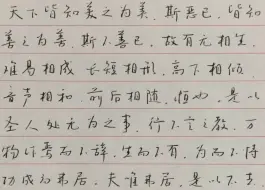 天下皆知美之为美，斯恶已，皆知
善之为善，斯不善已，故有无相生，
难易相成，长短相形，高下相倾，
音声相和，前后相随，恒也，是以
圣人处无为之事，行不言之教，万
物作焉而不辞，生而不有，为而不恃，
功成而弗居，夫唯弗居，是以不去。